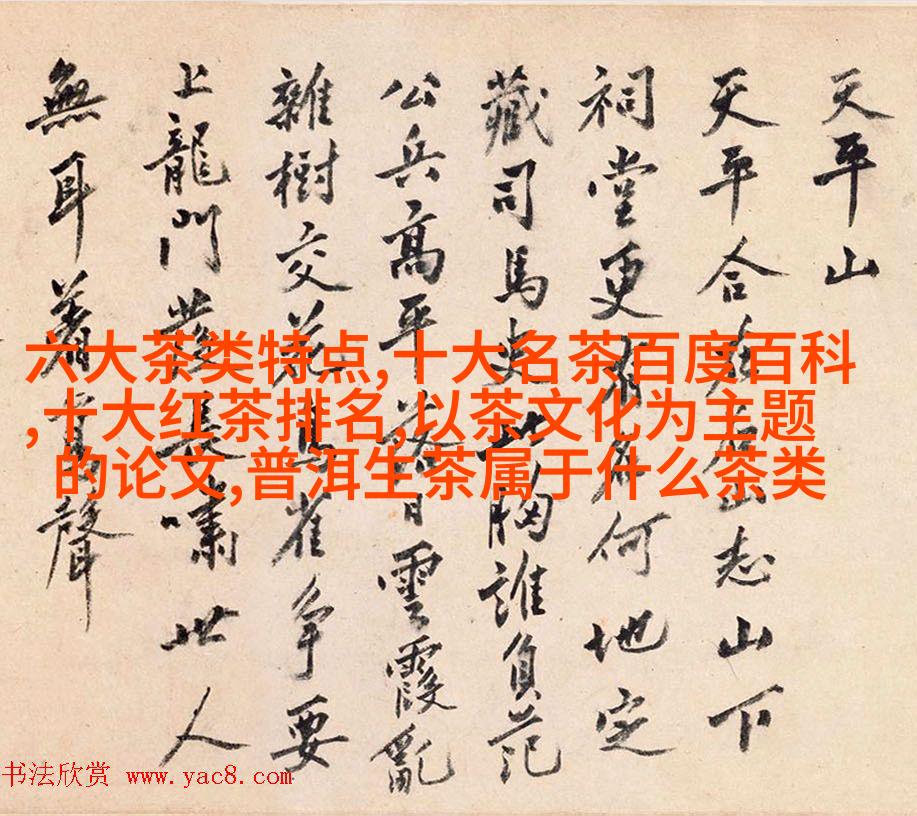 天平山
天平合山志山下
祠堂更何地定
藏司馬史胸誰負范
公兵高平落日雲霞亂
雜樹交花鳥雀爭要
上龍門發長嘯世人
無耳著聲
六大茶类特点,十大名茶百度百科
,十大红茶排名,以茶文化为主题
的论文,普洱生茶属于什么茶类
书法欣赏 www.yac8.com